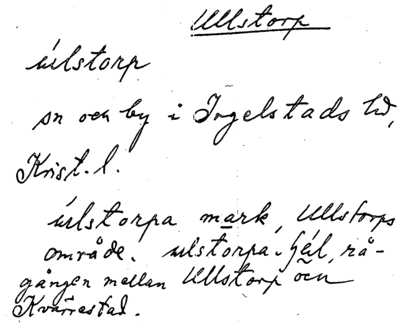 Ullstorp
úlstorp
sn och by i Ingelstads hd,
Krist. l.
úlstorpa mark, Ullstorps
område. ulstorpa-hél, rå-
gången mellan Ullstorp och
Kvärrestad.